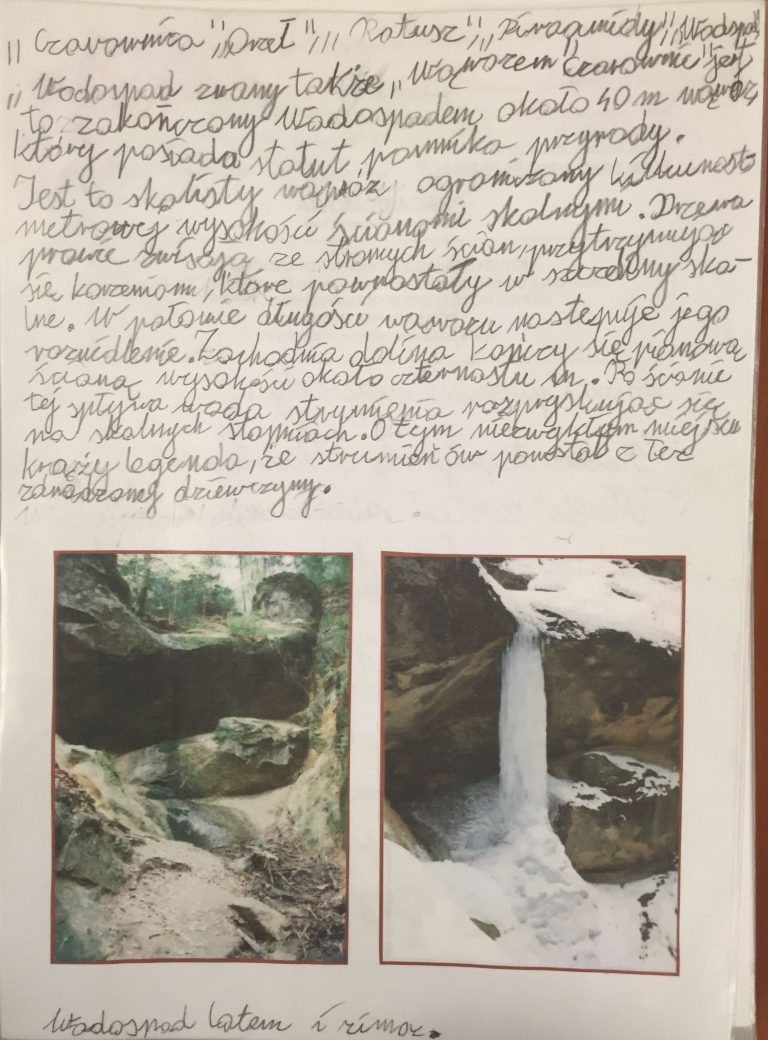 „Czarownica”, „Orzeł”, „Ratusz”, „Piramidy”, „Wodospad
„Wodospad zwany także „Wąwozem Czarownic” jest
to zakończony Wadospadem około 40 m wąwóz
który posiada statut pomnika przyrody.
Jest to skalisty wąwóz ograniczony kilkunasto
metrowej wysokości ścianami skalnymi. Drzewa
prawie zwisają ze stromych ścian, przytrzymując
się korzeniami, które powrastały w szczeliny ska-
lne. W połowie długości wąwozu następuje jego
rozwidlenie. Zachodnia dolina kończy się pionową
ścianą wysokości około czternastu m. Po ścianie
tej spływa woda strumienia rozpryskując się
na skalnych stopniach. O tym niezwykłym miejscu
krąży legenda, że strumień ów powstał z łez
zdradzonej dziewczyny.
Wadospad latem i zimą.